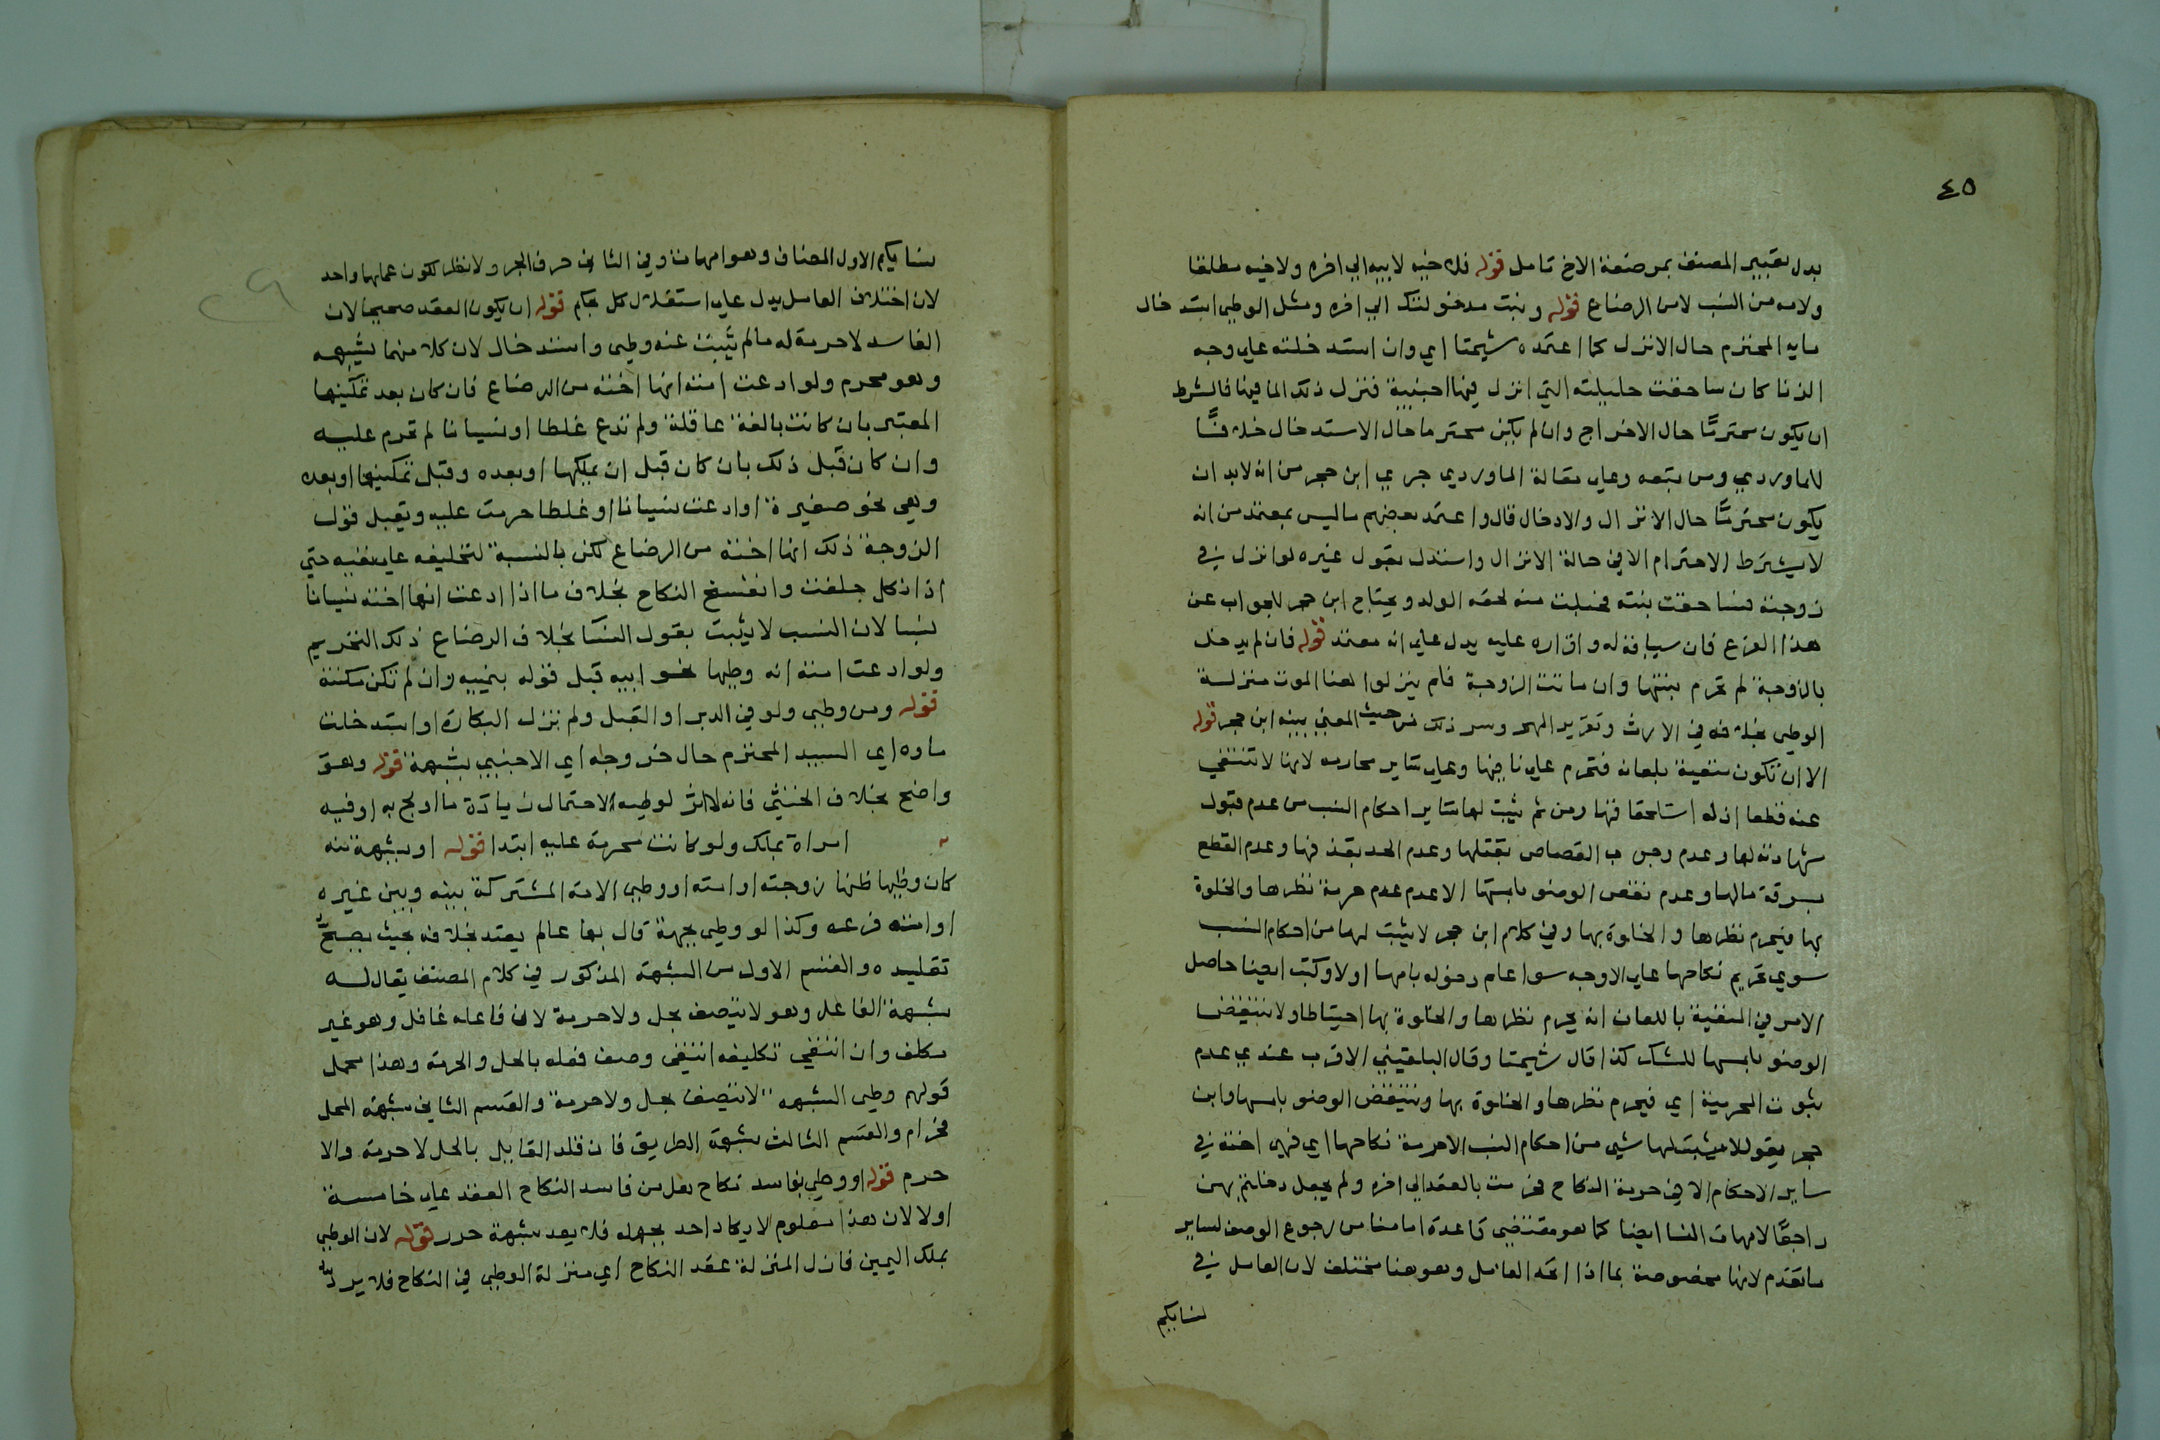 ٤٥
بدل تعبير المصنف بمرضعة الاخ تامل قوله فلاخيه لابيه الي اخره ولاخيه مطلقا
ولامه من النسب لا من الرضاع قوله وبنت مدخولتك الي اخره ومثل الوطي استدخال
مايه المحترم حال الانزال كما اعتمده شيخنا اي وان استدخلته علي وجه
الزنا كان ساحقت حليلته التي انزل فيها اجنبية فنزل ذلك الما فيها فالشرط
ان يكون محترمًا حال الاخراج وان لم يكن محترما حال الاستدخال خلافًا
للماوردي ومن تبعه وعلي مقالة الماوردي جري ابن حجر من انه لابد ان
يكون محترمًا حال الانزال والادخال قال واعتمد بعضهم ماليس بمعتمد من انه
لا يشترط الاحترام الا في حالة الانزال واستدل بقول غيره لو انزل في
زوجته فساحقت بنته فحبلت منه لحقه الولد ويحتاج ابن حجر للجواب عن
هذا الفرع فان سياقه له واقراره عليه يدل علي انه معتمد قوله فان لم يدخل
بالزوجة لم تحرم بنتها وان ماتت الزوجة فلم ينزلوا هنا الموت منزلة
الوطي بخلافه في الارث وتقرير المهر وسر ذلك من حيث المعني بينه ابن حجر قوله
الا ان تكون منفية بلعانه فتحرم علي نافيها وعلي ساير محارمه لانها لا تنتفي
عنه قطعا اذ له استلحاقها ومن ثم يثبت لها ساير احكام النسب من عدم قبول
شهادته لها وعدم وجوب القصاص بقتلها وعدم الحد بقذفها وعدم القطع
بسرقة مالها وعدم نقض الوضو بلمسها الا عدم عدم حرمة نظرها والخلوة
بها فيحرم نظرها والخلوة بها وفي كلام ابن حجر لا يثبت لها من احكام النسب
سوي تحريم نكاحها علي الاوجه سوا علم دخوله بامها اولا وكتب ايضا حاصل
الامر في المنفية باللعان انه يحرم نظرها والخلوة بها احتياطا ولا ينتقض
الوضو بلمسها للشك كذا قال شيخنا وقال البلقيني الاقرب عندي عدم
ثبوت المحرمية اي فيحرم نظرها والخلوة بها وينتقض الوضو بلمسها وابن
حجر يقول لا يثبت لها شي من احكام النسب الا حرمة نكاحها اي فهي اخته في
ساير الاحكام الا في حرمة النكاح فحرمت بالعقد الي اخره ولم يجعل دخلتم بهن
راجعًا لامهات النسا ايضا كما هو مقتضي قاعدة امامنا من رجوع الوصف لساير
ما تقدم لانها مخصوصة بما اذا اتحد العامل وهو هنا مختلف لان العامل في
نسايكم
نسايكم الاول المضاف وهو امهات وفي الثاني حرف الجر ولا نظر لكون عملهما واحد
لان اختلاف العامل يدل علي استقلال كل بحكم قوله ان يكون العقد صحيحا لان
الفاسد لا حرمة له ما لم ينشا عنه وطي او استدخال لان كلا منهما شبهه
وهو محرم ولو ادعت امته انها اخته من الرضاع فان كان بعد تمكينها
المعتبر بان كانت بالغة عاقلة ولم تدع غلطا او نسيانا لم تحرم عليه
وان كان قبل ذلك بان كان قبل ان يملكها او بعده وقبل تمكينها او بعده
وهي نحو صغيرة او ادعت نسيانا او غلطا حرمت عليه ويقبل قول
الزوجة ذلك انها اخته من الرضاع لكن بالنسبة لتحليفه علي نفيه حتي
اذا نكل حلفت وانفسخ النكاح بخلاف ما اذا ادعت انها اخته نسيانا
نسبا لان النسب لا يثبت بقول النسا بخلاف الرضاع ذلك التحريم
ولو ادعت امته انه وطيها نحو ابيه قبل قوله بنفيه وان لم تكن مكنته
قوله ومن وطي ولو في الدبر او القبل ولم تزل البكارة او استدخلت
ماه اي السيد المحترم حال خروجه اي الاجنبي بشبهة قوله وهو
واضح بخلاف الخنثي فانه لا اثر لوطيه لاحتمال زيادة ما اولج به او فيه
امراة بملك ولو كانت محرمة عليه ابتدا قوله او بشبهة منه
كان وطيها ظنها زوجته او امته او وطي الامة المشتركة بينه وبين غيره
او امته فرعه وكذا لو وطي بجهة قال بها عالم يعتد بخلافه بحيث يصح
تقليده والقسم الاول من الشبهة المذكور في كلام المصنف يقال له
شبهة الفاعل وهو لا يتصف بحل ولا حرمة لان فاعله غافل وهو غير
مكلف وان انتفي تكليفه انتفي وصف فعله بالحل والحرمة وهذا محمل
قولهم وطي الشبهة لا يتصف بحل ولا حرمة والقسم الثاني شبهة المحل
فحرام والقسم الثالث شبهة الطريق فان قلد القايل بالحل لا حرمة والا
حرم قوله او وطي بفاسد نكاح هل من فاسد النكاح العقد علي خامسة
اولا لان هذا معلوم لا يكاد احد يجهله فلا يعد شبهة حرر قوله لان الوطي
بملك اليمين نازل منزلة عقد النكاح اي منزلة الوطي في النكاح فلا يرد